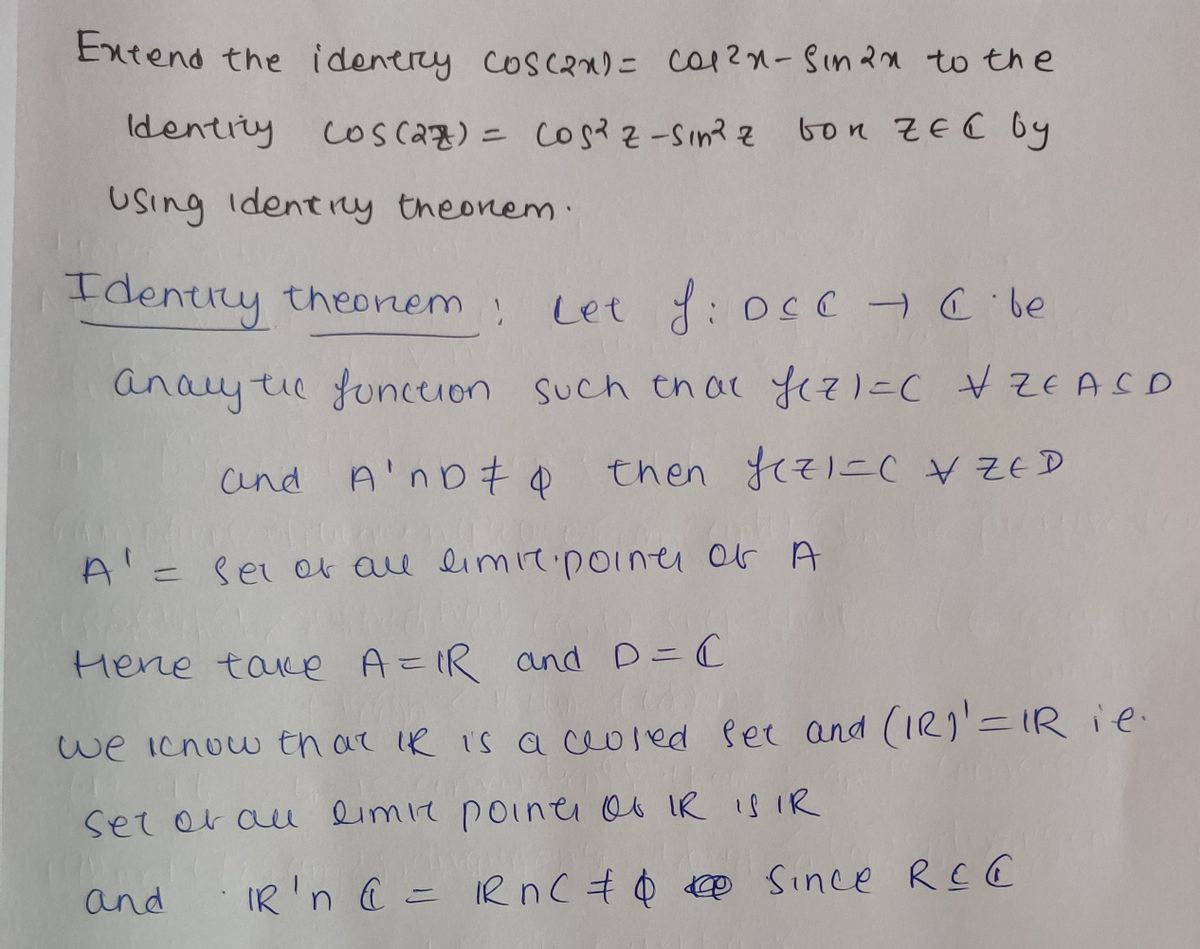 Extend the identity cos(2x) = cos²x - sin²x to the
Identity cos(2z) = cos² z - sin² z for z ∈ ℂ by
using identity theorem.
Identity theorem : Let f : D ⊆ ℂ → ℂ be
analytic function such that f(z) = C ∀ z ∈ A ⊆ D
and A' ∩ D ≠ φ then f(z) = C ∀ z ∈ D
A' = set of all limit points of A
Here take A = ℝ and D = ℂ
we know that ℝ is a closed set and (ℝ)' = ℝ i.e.
set of all limit points of ℝ is ℝ
and ℝ' ∩ ℂ = ℝ ∩ ℂ ≠ φ since R ⊆ ℂ